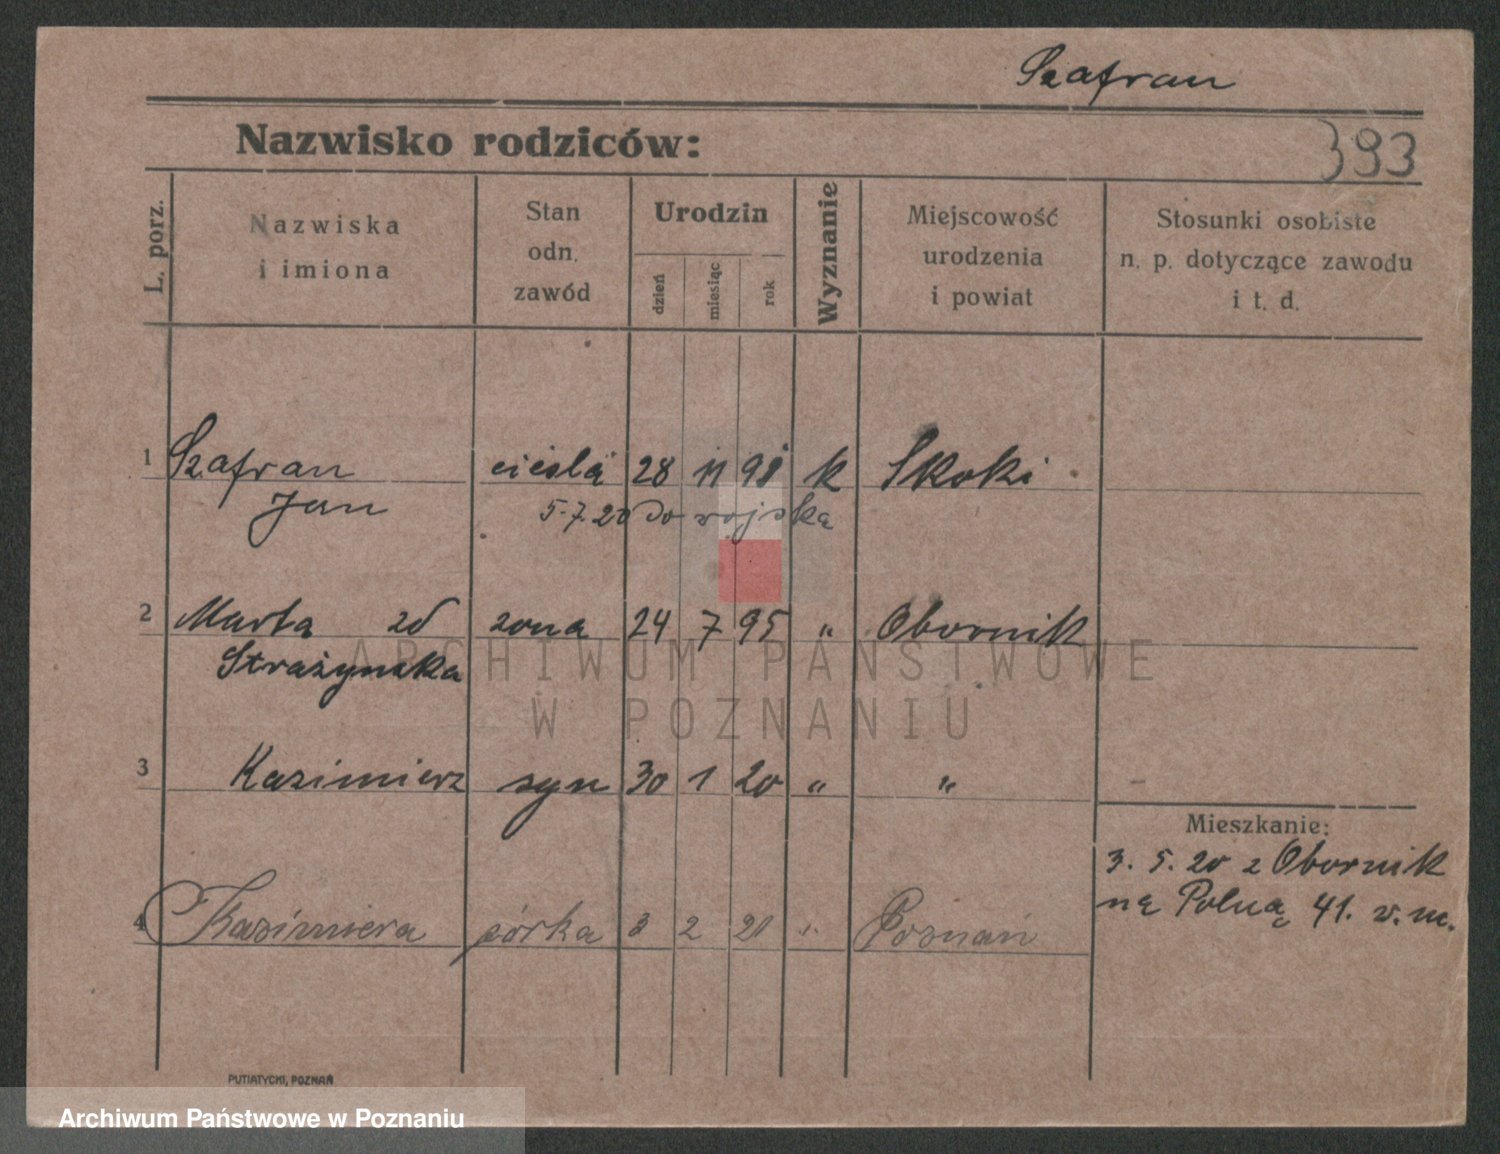 Szafran
Nazwisko rodziców:
393
L. porz.
Nazwiska
i imiona
Stan
odn.
zawód
Urodzin
dzień
miesiąc
rok
Wyznanie
Miejscowość
urodzenia
i powiat
Stosunki osobiste
n. p. dotyczące zawodu
i t. d.
1 Szafran cieśla 28 11 98 k Skoki
Jan 5.7.20 do wojska
2 Marta zd żona 24 7 95 " Obornik
Strażynska
ARCHIWUM PAŃSTWOWE
W POZNANIU
3 Kazimierz syn 30 1 20 " "
Mieszkanie:
3. 5. 20 z Obornik
na Polną 41. w. m.
4 Kazimiera córka 3 2 21 " Poznań
PUTIATYCKI, POZNAŃ
Archiwum Państwowe w Poznaniu